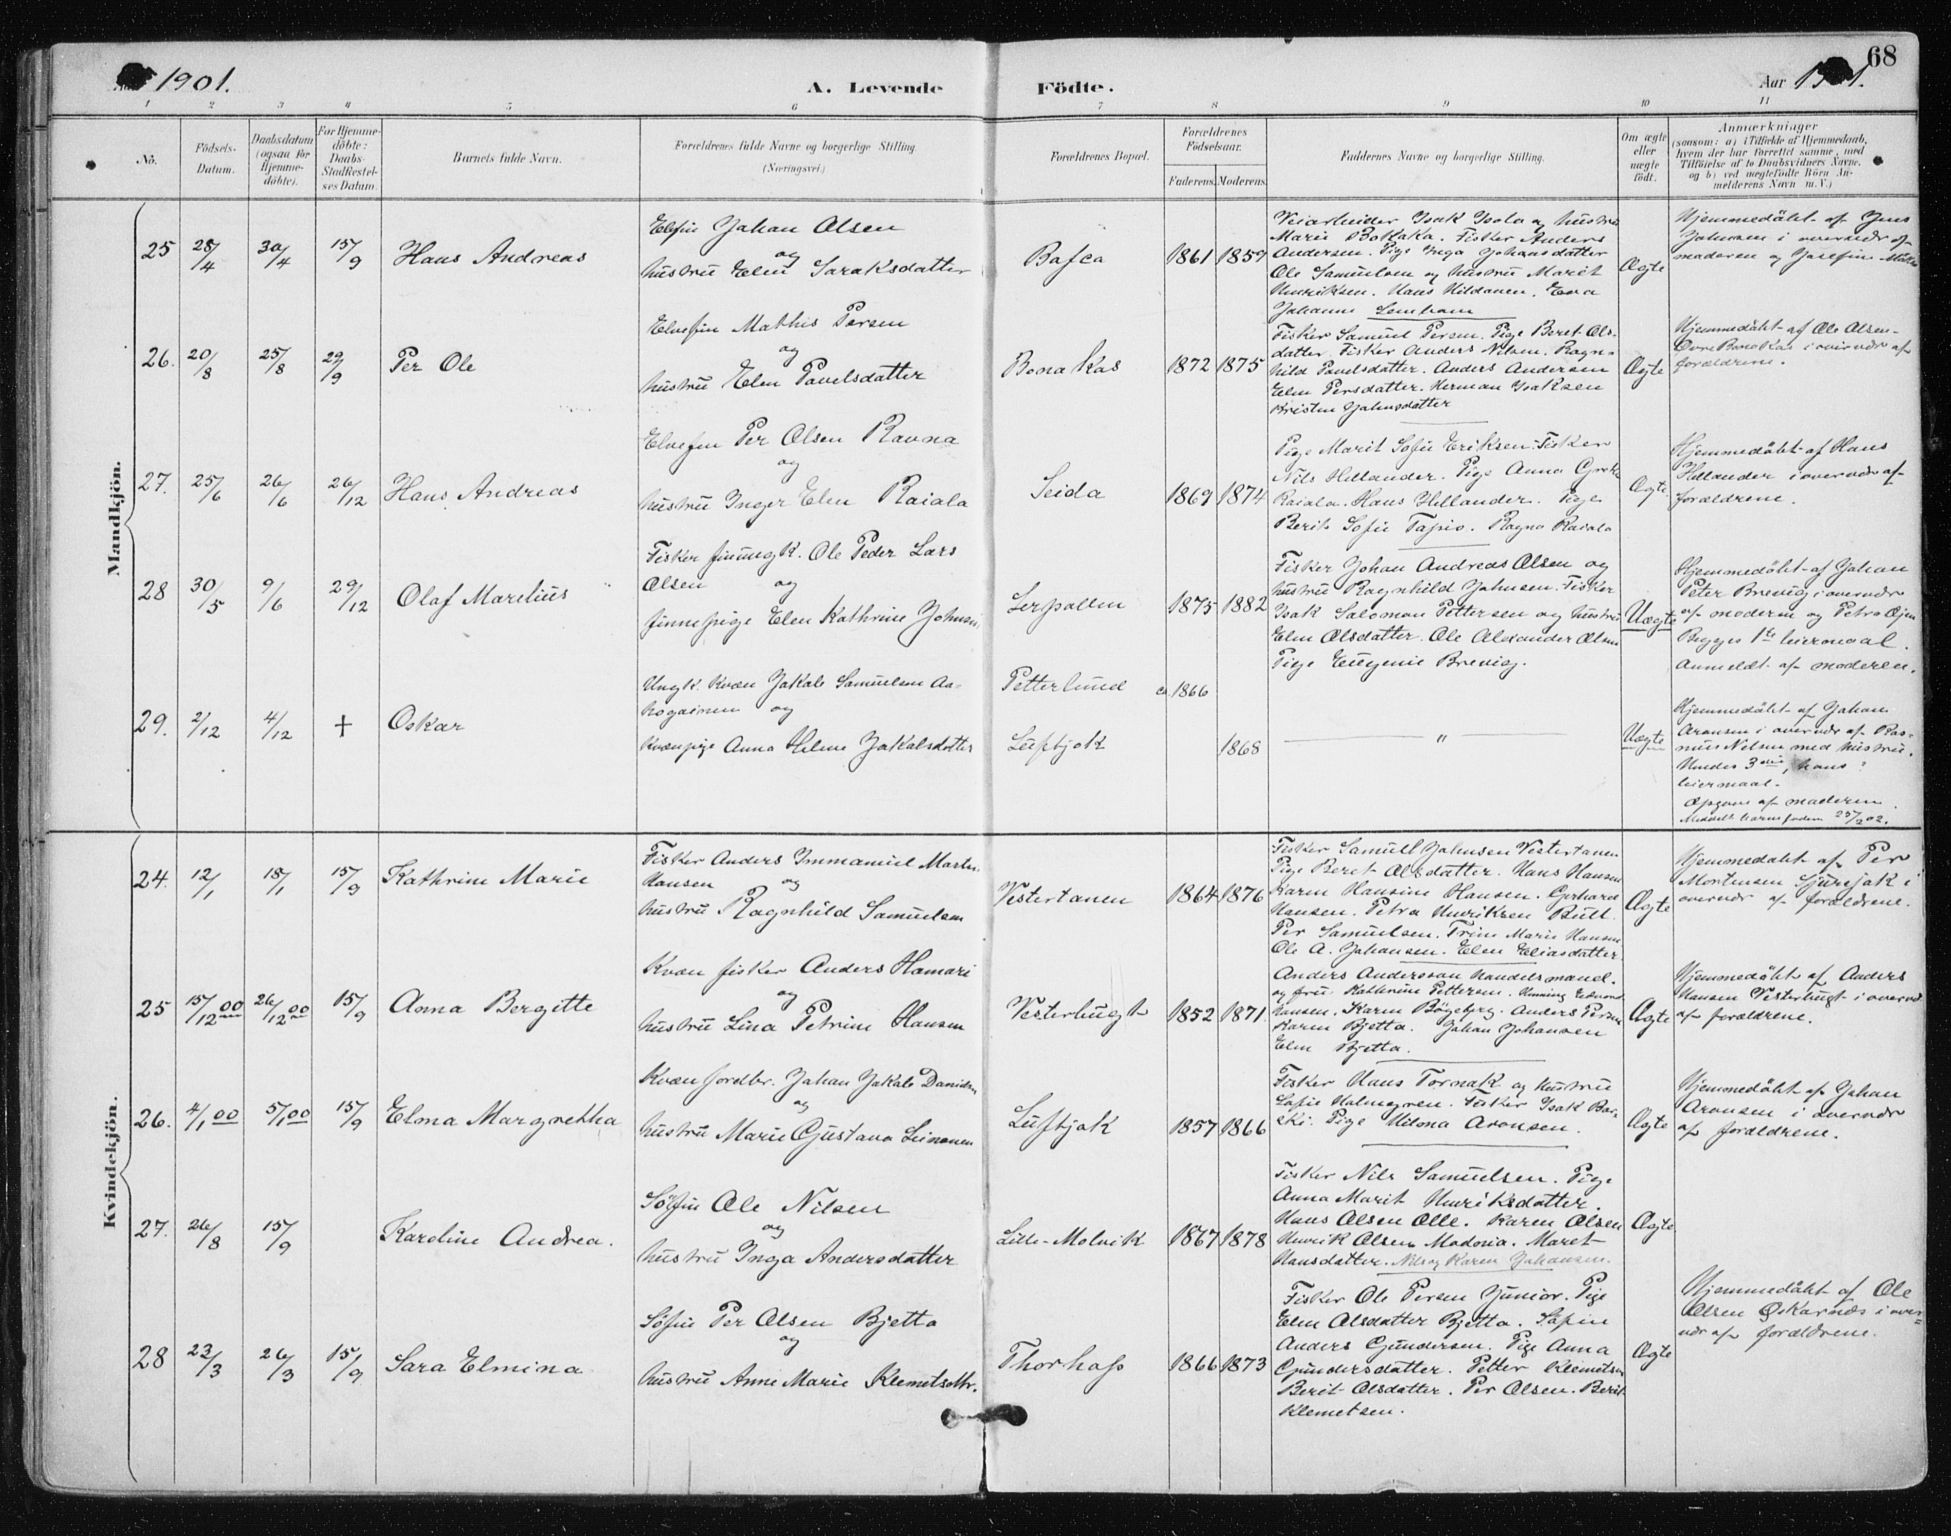 68
1901.
A. Levende
Födte.
Aar 1901.
1 2 3 4 5 6 7 8 9 10 11
No.
Födsels-
Datum.
Daabsdatum
(ogsaa for
Hjemme-
döbte).
For Hjemme-
döbte:
Daabs-
Stadfæstel-
ses Datum.
Barnets fulde Navn.
Forældrenes fulde Navne og borgerlige Stilling
(Næringsvei.)
Forældrenes Bopæl.
Forældrenes
Födselsaar.
Faderens.
Moderens.
Faddernes Navne og borgerlige Stilling.
Om ægte
eller
uægte
födt.
Anmærkninger
(saasom: a) i Tilfælde af Hjemmedaab,
hvem der har forrettet samme, med
Tilföielse af to Daabsvidners Navne,
og b) ved uægtefödte Börn An-
melderens Navn m. V.)
Mandkjön.
25 28/4 30/4 15/9 Hans Andreas
Elvefin Johan Olsen
og
hustru Elen Saraksdatter
Bafca 1861 1859
Veiarbeider Isak Isola og hustru
Marie Bottaka. Fisker Anders
Andersen. Pige Inga Johansdatter
Ole Samuelsen og hustru Marit
Henriksen. Hans Hildonen. Eva
Johanne
Ægte
Hjemmedöbt af Jens
Johnsen i overvær af
moderen og Josefine
26. 20/8 25/8 29/9 Per Ole
Elvefin Mathis Persen
og
hustru Elen Pavelsdatter
Bonakas 1872 1875
Fisker Samuel Persen. Pige Beret Ols-
datter. Fisker Anders Nilsen. Ragn-
hild Pavelsdatter. Anders Andersen
Elen Persdatter. Herman Isaksen
Kristen Johnsdatter
Ægte
Hjemmedöbt af Ole Olsen-
Övre Bonakas i overvær af
forældrene.
27. 25/6 26/6 26/12 Hans Andreas
Elvefin Per Olsen Ravna
og
hustru Inger Elen Raiala
Seida 1869 1874
Pige Marit Sofie Eriksen. Fisker
Nils Hillander. Pige Anna Grete
Raiala. Hans Hillander. Pige
Berit Sofie Tapio. Ragna Raiala
Ægte
Hjemmedöbt af Hans
Hillander i overvær af
forældrene.
28 30/5 9/6 29/12 Olaf Marelius
Fisker finungk. Ole Peder Lars
Olsen og
finnepige Elen Kathrine Johnsen
Lerpollen 1875 1882
Fisker Johan Andreas Olsen og
hustru Ragnhild Johnsen. Fisker
Isak Salomon Pettersen og hustru
Elen Olsdatter. Ole Alexander Olsen
Pige Eugenie Brevig.
Uægte
Hjemmedöbt af Johan
Peter Brevig i overvær
af moderen og Petra
Begges 1ste leiermaal.
Anmeldt af moderen.
29. 2/12 4/12 † Oskar
Ungk. Kvæn Jakob Samuelsen Aa-
hogainen og
Kvænpige Anna Helene Jakobsdatter
Petterlund ca 1866
Luftjok 1868
"
Uægte
Hjemmedöbt af Johan
Aronsen i overvær af Ras-
mus Nilsen med hustru.
Hendes 3die, hans ?
leiermaal.
Opgave af moderen.
Meddelt barnefaderen 25/2 02.
Kvindekjön.
24. 12/1 18/1 15/9 Kathrine Marie
Fisker Anders Immanuel Morten
Hansen og
hustru Ragnhild Samuelsen
Vestertanen 1864 1876
Fisker Samuel Johnsen Vestertanen
Pige Beret Olsdatter. Hans Hansen
Karen Hansine Hansen. Gerhard
Hansen. Petra Henriksen Bull.
Per Samuelsen. Trine Marie Hansen
Ole A. Johansen. Elen Eliasdatter.
Ægte
Hjemmedöbt af Per
Mortensen Sjursjok i
overvær af forældrene.
25 15/12 00 26/12 00 15/9 Anna Bergitte
Kvæn fisker Anders Hamari
og
hustru Lina Petrine Hansen
Vesterbugt 1852 1871
Anders Anderssen Handelsmand
og fru Kathrine Pettersen. Henning Edmond
Hansen. Karen Bögeberg. Anders Persen
Karen Bjetta. Johan Johansen
Elen Bjetta.
Ægte
Hjemmedöbt af Anders
Hansen Vesterbugt i overvær
af forældrene.
26. 4/1 00 5/1 00 15/9 Elma Margretha
Kvæn jordbr. Johan Jakob Danielsen
og
hustru Marie Gustava Leinonen
Luftjok 1857 1866
Fisker Hans Tornak og hustru
Sofie Holmgren. Fisker Isak Bar-
ski. Pige Hilma Aronsen.
Ægte
Hjemmedöbt af Johan
Aronsen i overvær
af forældrene.
27. 26/8 15/9 Karoline Andrea.
Söfin Ole Nilsen
og
hustru Inga Andersdatter
Lille-Molvik 1867 1878
Fisker Nils Samuelsen. Pige
Anna Marit Henriksdatter.
Hans Olsen Olle. Karen Olsen
Henrik Olsen Madvia. Maret
Hansdatter. Nils og Karen Johansen.
Ægte
28 23/3 26/3 15/9 Sara Elmina
Söfin Per Olsen Bjetto
og
hustru Anne Marie Klemetsdtr.
Thorhofs 1866 1873
Fisker Ole Persen Junior. Pige
Elen Olsdatter Bjetta. Söfin
Anders Gundersen. Pige Anna
Gundersdatter. Petter Klemetsen
Berit Olsdatter. Per Olsen. Berit
Klemetsen.
Ægte
Hjemmedöbt af Ole
Olsen Öskarnæs i over-
vær af forældrene.